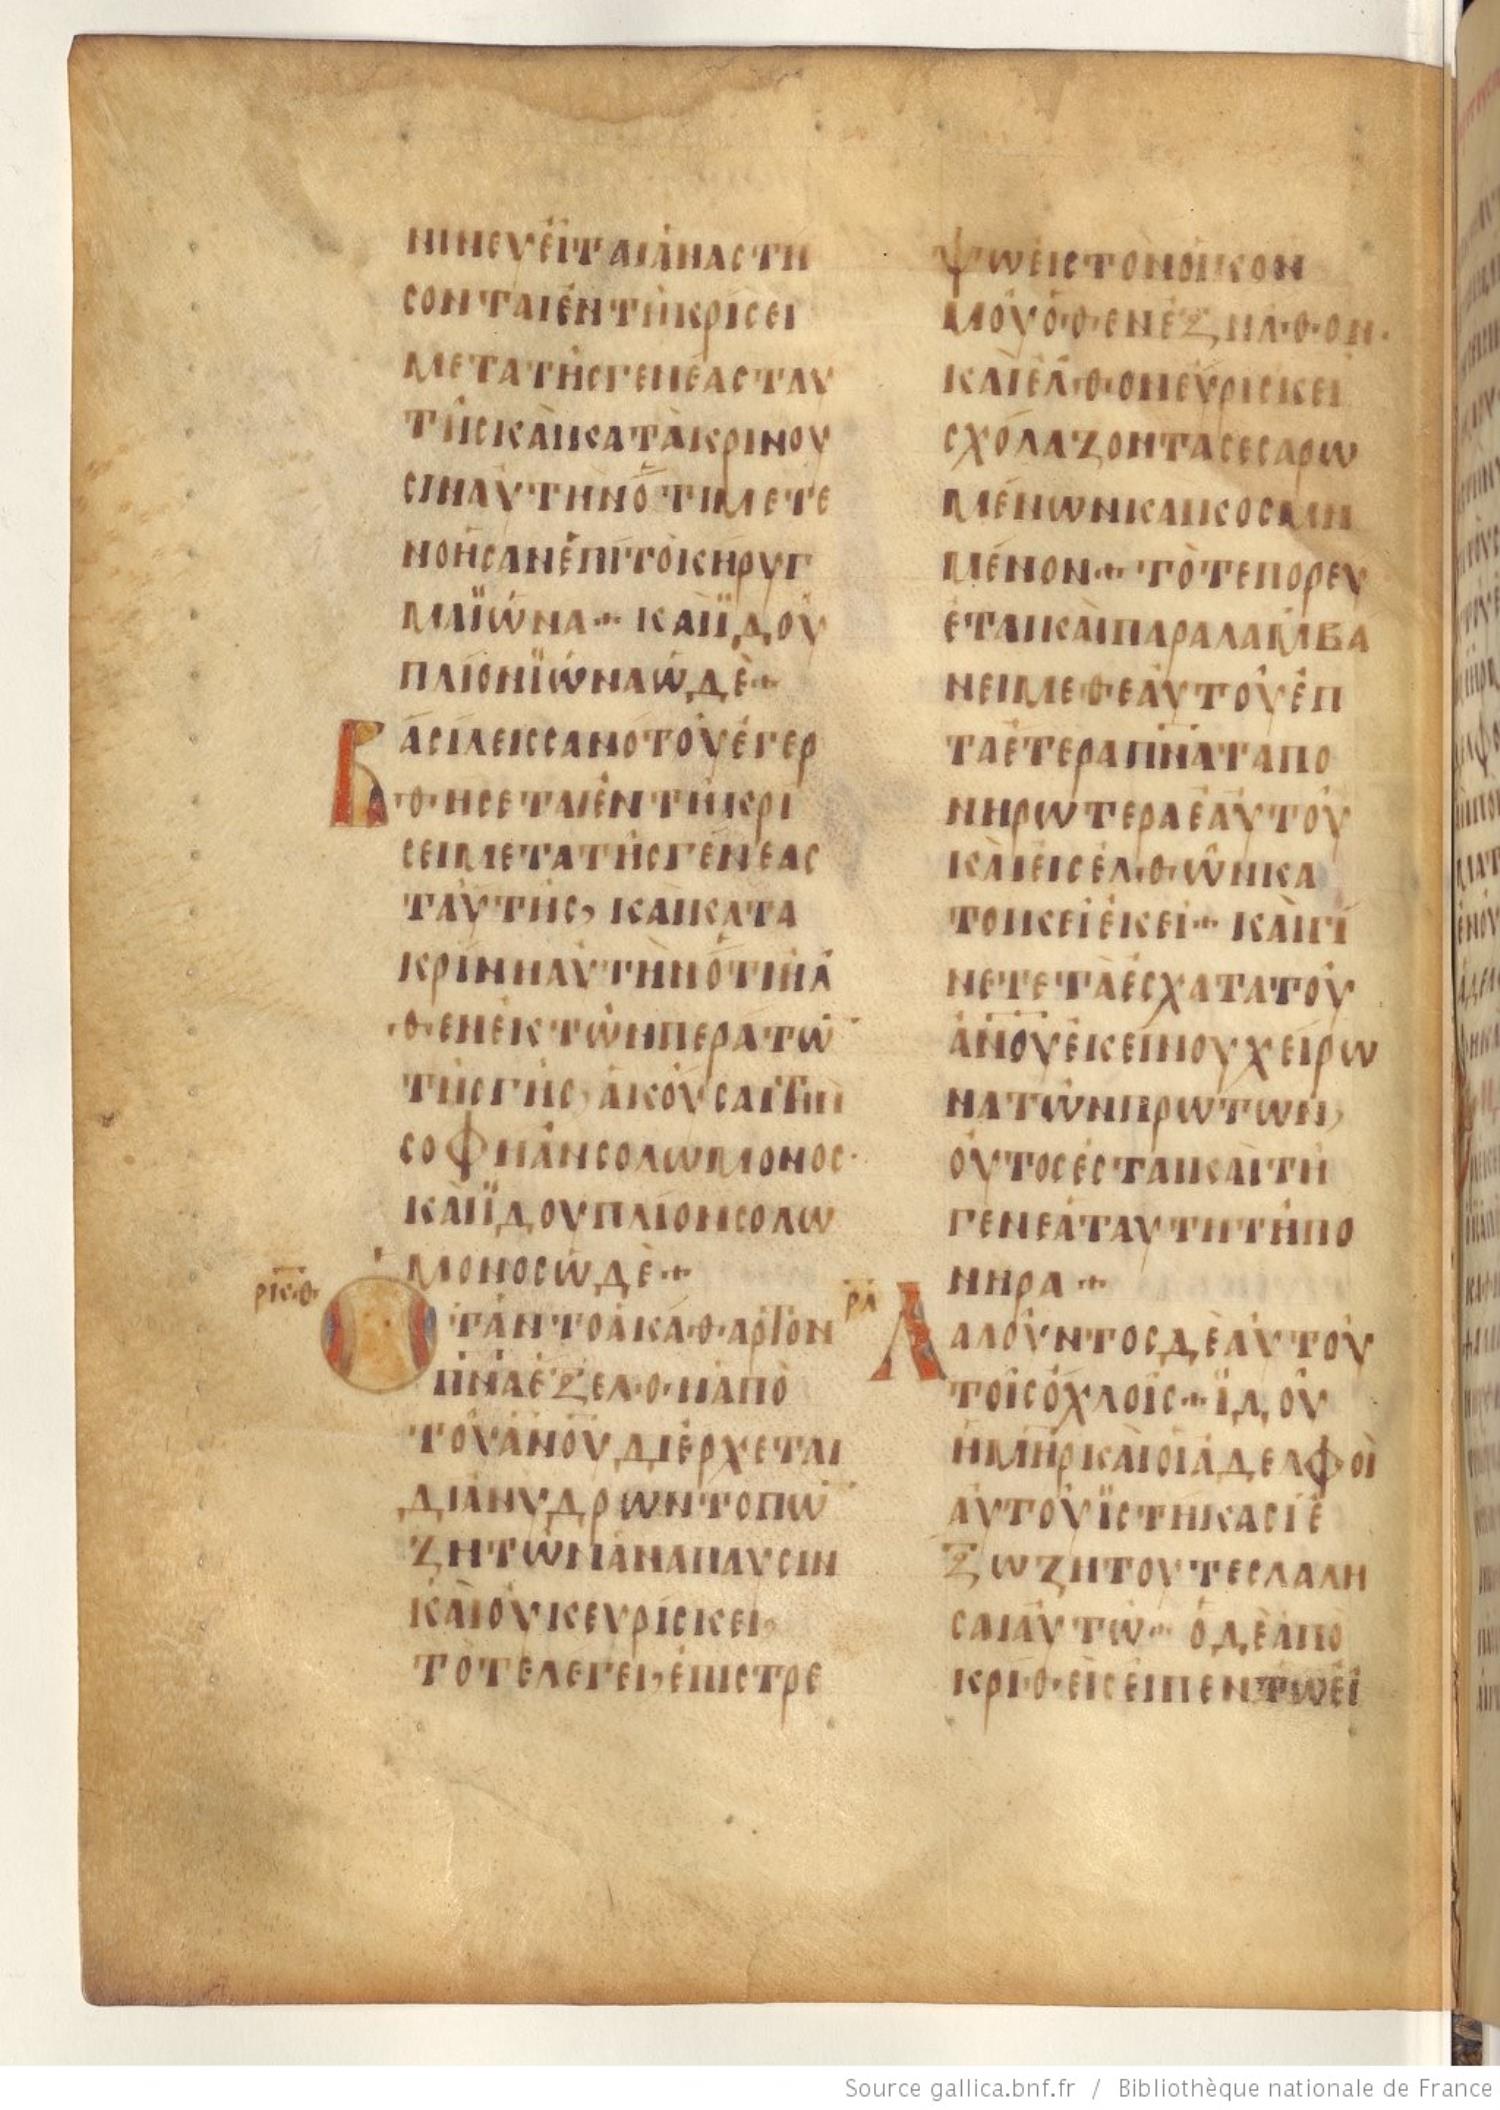 ΝΙΝΕΥΕΙΤΑΙΑΝΑСΤΗ
СΟΝΤΑΙΕΝΤΗΚΡΙСΕΙ
ΜΕΤΑΤΗСΓΕΝΕΑСΤΑΥ
ΤΗСΚΑΙΚΑΤΑΚΡΙΝΟΥ
СΙΝΑΥΤΗΝΟΤΙΜΕΤΕ
ΝΟΗСΑΝΕΠΙΤΟΚΗΡΥΓ
ΜΑΪΩΝΑ·+·ΚΑΙΪΔΟΥ
ΠΛΙΟΝΪΩΝΑΩΔΕ·+
ΒΑСΙΛΕΙССΑΝΟΤΟΥΕΓΕΡ
ΘΗСΕΤΑΙΕΝΤΗΚΡΙ
СΕΙΜΕΤΑΤΗСΓΕΝΕΑС
ΤΑΥΤΗС, ΚΑΙΚΑΤΑ
ΚΡΙΝΗΑΥΤΗΝΟΤΙΗΛ
ΘΕΝΕΚΤΩΝΠΕΡΑΤΩ̅
ΤΗСΓΗС, ΑΚΟΥСΑΙΤΗΝ
СΟΦΗΑΝСΟΛΩΜΟΝΟС·
ΚΑΙΪΔΟΥΠΛΙΟΝСΟΛΩ
ΜΟΝΟСΩΔΕ·+
ΡΚΘ
ΟΤΑΝΤΟΑΚΑΘΑΡΤΟΝ
Π̅Ν̅Α̅ΕΞΕΛΘΗΑΠΟ
ΤΟΥΑ̅Ν̅Ο̅Υ̅ΔΙΕΡΧΕΤΑΙ
ΔΙΑΝΥΔΡΩΝΤΟΠΩ̅
ΖΗΤΩΝΑΝΑΠΑΥСΙΝ
ΚΑΙΟΥΚΕΥΡΙСΚΕΙ,
ΤΟΤΕΛΕΓΕΙ, ΕΠΙСΤΡΕ
ΨΩΕΙСΤΟΝΟΙΚΟΝ
ΜΟΥΟΘΕΝΕΞΗΛΘΟΝ·
ΚΑΙΕΛΘΟΝΕΥΡΙСΚΕΙ
СΧΟΛΑΖΟΝΤΑСΕСΑΡΩ
ΜΕΝΩΝΚΑΙΚΟСΜΗ
ΜΕΝΟΝ·+·ΤΟΤΕΠΟΡΕΥ
ΕΤΑΙΚΑΙΠΑΡΑΛΑΜΒΑ
ΝΕΙΜΕΘΕΑΥΤΟΥΕΠ
ΤΑΕΤΕΡΑΠ̅Ν̅Α̅ΤΑΠΟ
ΝΗΡΩΤΕΡΑΕΑΥΤΟΥ
ΚΑΙΕΙСΕΛΘΩΝΚΑ
ΤΟΙΚΕΙΕΚΕΙ·+·ΚΑΙΓΙ
ΝΕΤΕΤΑΕСΧΑΤΑΤΟΥ
Α̅Ν̅Ο̅Υ̅ΕΚΕΙΝΟΥΧΕΙΡΩ
ΝΑΤΩΝΠΡΩΤΩΝ,
ΟΥΤΟСΕСΤΑΙΚΑΙΤΗ
ΓΕΝΕΑΤΑΥΤΗΤΗΠΟ
ΝΗΡΑ·+
ΡΛ
ΛΑΛΟΥΝΤΟСΔΕΑΥΤΟΥ
ΤΟΙСΟΧΛΟΙС·+·ΪΔΟΥ
ΗΜ̅Η̅Ρ̅ΚΑΙΟΙΑΔΕΛΦΟΙ
ΑΥΤΟΥΪСΤΗΚΑСΙΕ
ΞΩΖΗΤΟΥΤΕСΛΑΛΗ
СΑΙΑΥΤΩ·+·ΟΔΕΑΠΟ
ΚΡΙΘΕΙСΕΙΠΕΝΤΩΕΙ
Source gallica.bnf.fr / Bibliothèque nationale de France